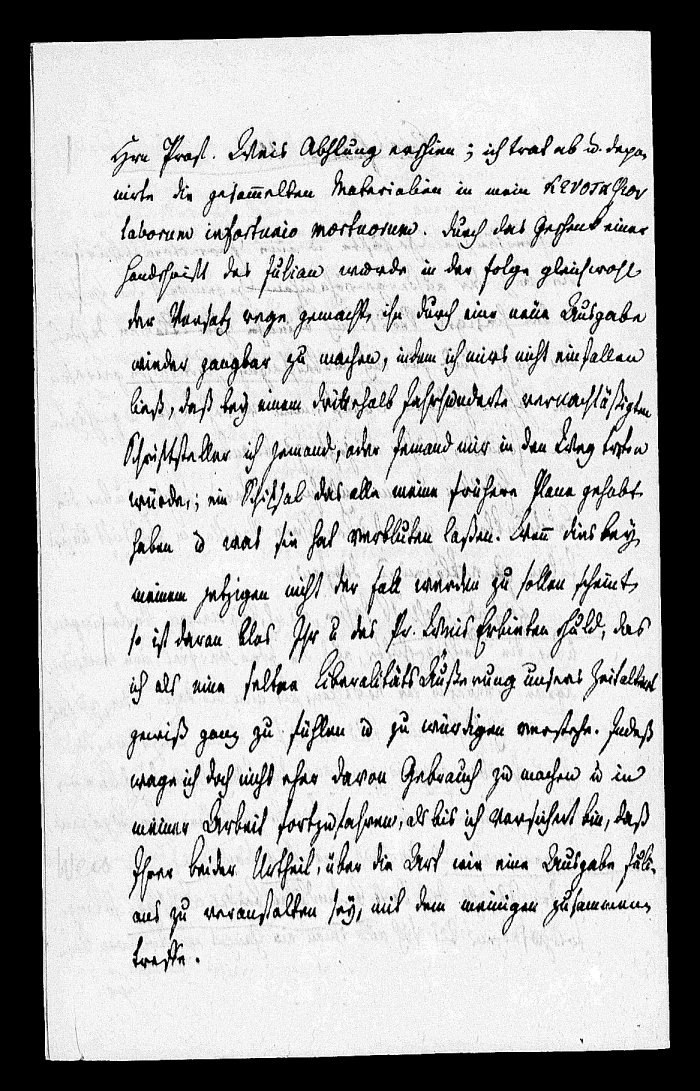 Hrn Prof. Weis Abhlung erschien; ich trat ab u. depo-
nirte die gesam̄elten Materialien in mein κενοταφιον
laborum infortunio mortuorum. Durch das Geschenk einer
Handschrift des Julian wurde in der Folge gleichwohl
der Vorsatz rege gemacht, ihn durch eine neue Ausgabe
wieder gangbar zu machen, indem ich mirs nicht einfallen
ließ, daß bey einem dritthalb Jahrhunderte vernachläßigten
Schriftsteller ich jemand, oder jemand mir in den Weg treten
würde,; ein Schiksal das alle meine frühere Plane gehabt
haben u was sie hat verbluten laßen. Wen̄ dies bey
meinem jetzigen nicht der Fall werden zu sollen scheint
so ist daran blos Ihr u des Pr. Weis Erbieten Schuld, das
ich als eine seltne LiberalitätsAußerung unsers Zeitalters
gewiß ganz zu fühlen u zu würdigen verstehe. Indeß
wage ich doch nicht eher davon Gebrauch zu machen u in
meiner Arbeit fortzufahren, als bis ich versichert bin, daß
Ihrer beider Urtheil, über die Art wie eine Ausgabe Juli-
ans zu veranstalten sey, mit dem meinigen zusammen-
treffe.